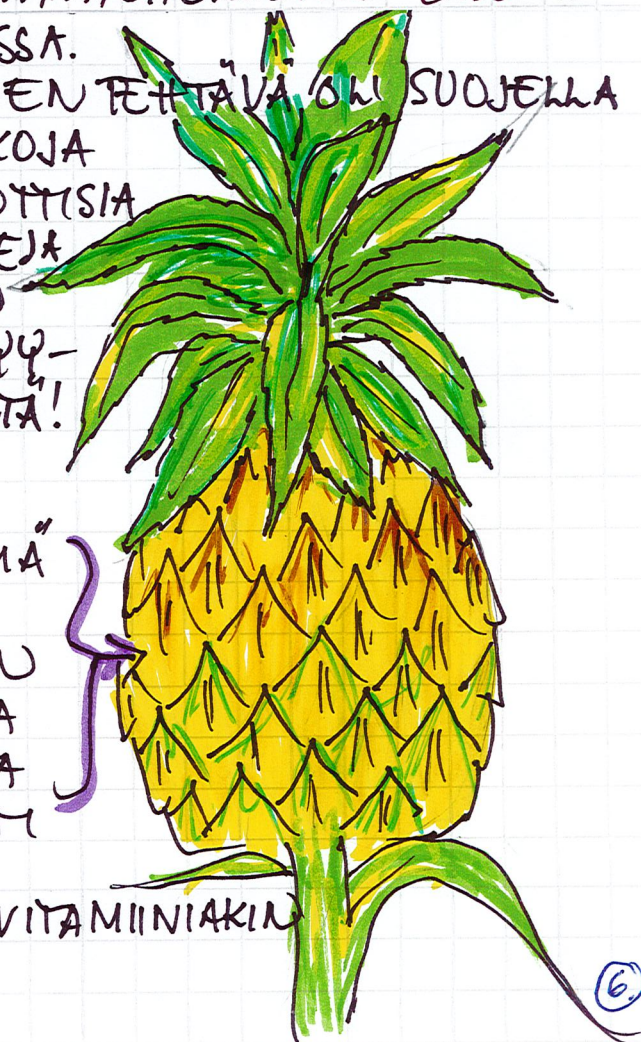 SSA.
EN TEHTÄVÄ OLI SUOJELLA
KOJA
OTTISIA
EJA
YY-
TÄ!
MÄ
U
A
A
VITAMIINIAKIN
6.